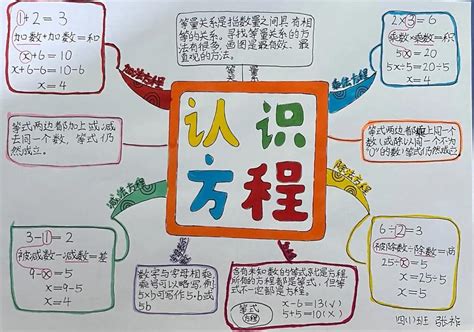 1+2=3
加数+加数=和
x+6=10
x+6-6=10-6
x=4
加法方程
等量关系是指数量之间具有相
等的关系。寻找等量关系的方
法有很多，画图是最有效、最
直观的方法。
等量
关系
2×3=6
乘数×乘数=积
5x=20
5x÷5=20÷5
x=4
乘法方程
等式两边都加上或减
去同一个数，等式仍
然成立。
认识
方程
等式两边都乘上同一个
数（或除以同一个不为
"0"的数）等式仍然成立
减法方程
除法方程
3-1=2
被减数-减数=差
9-x=5
9-5=x
x=4
数字与字母相乘
乘号可以略写，例
5×b可写作5·b或
5b
含有未知数的等式就是方程
所有的方程都是等式，但等式
不一定都是方程。
等式
方程
x-6=13(√)
5+5=10(×)
6÷2=3
被除数÷除数=商
25÷x=5
x=25÷5
x=5
四(1)班 张